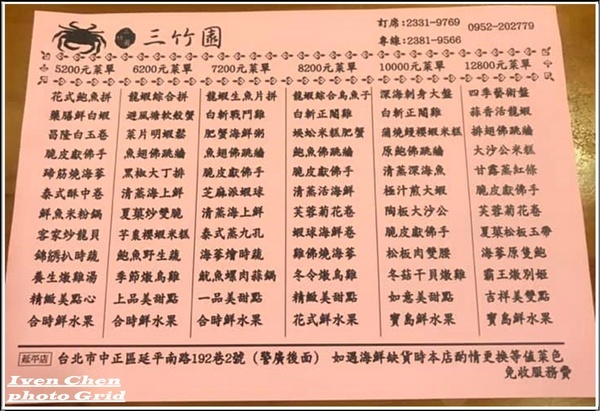 三竹園
訂席:2331-9769 0952-202779
專線:2381-9566
5200元菜單 6200元菜單 7200元菜單 8200元菜單 10000元菜單 12800元菜單
花式鮑魚拼 龍蝦綜合拼 龍蝦生魚片拼 龍蝦綜合烏魚子 深海刺身大盤 四季藝術盤
藥膳鮮白蝦 避風塘軟殼蟹 白斬戰鬥雞 白斬正閹雞 白斬正閹雞 蒜香活龍蝦
昌隆白玉卷 菜片明蝦鬆 肥蟹海鮮粥 蜈蚣米糕肥蟹 蒲燒鰻櫻蝦米糕 排翅佛跳牆
脆皮獻佛手 魚翅佛跳牆 魚翅佛跳牆 鮑魚佛跳牆 原鮑佛跳牆 大沙公米糕
蹄筋燒海蔘 黑椒大丁排 脆皮獻佛手 脆皮獻佛手 清蒸深海魚 甘露蒸紅條
泰式酥中卷 清蒸海上鮮 芝麻派蝦球 清蒸活海鮮 極汁煎大蝦 脆皮獻佛手
鮮魚米粉鍋 夏菓炒雙脆 清蒸海上鮮 芙蓉菊花卷 陶板大沙公 芙蓉菊花卷
客家炒龍貝 芋棗櫻蝦米糕 泰式蒸九孔 蝦球海鮮卷 脆皮獻佛手 夏菓松板玉帶
錦綉扒時蔬 鮑魚野生蔬 海蔘燴時蔬 雞佛燒海蔘 松板肉雙腰 海蔘原隻鮑
養生燉雞湯 季節燉烏雞 魷魚螺肉蒜鍋 冬令燉烏雞 冬菇干貝燉雞 霸王燉別姬
精緻美點心 上品美甜點 一品美甜點 精緻美甜點 如意美甜點 吉祥美雙點
合時鮮水果 合時鮮水果 合時鮮水果 花式鮮水果 寶島鮮水果 寶島鮮水果
延平店 台北市中正區延平南路192巷2號(警廣後面) 如遇海鮮缺貨時本店酌情更換等值菜色
免收服務費
Iven Chen
photo Grid